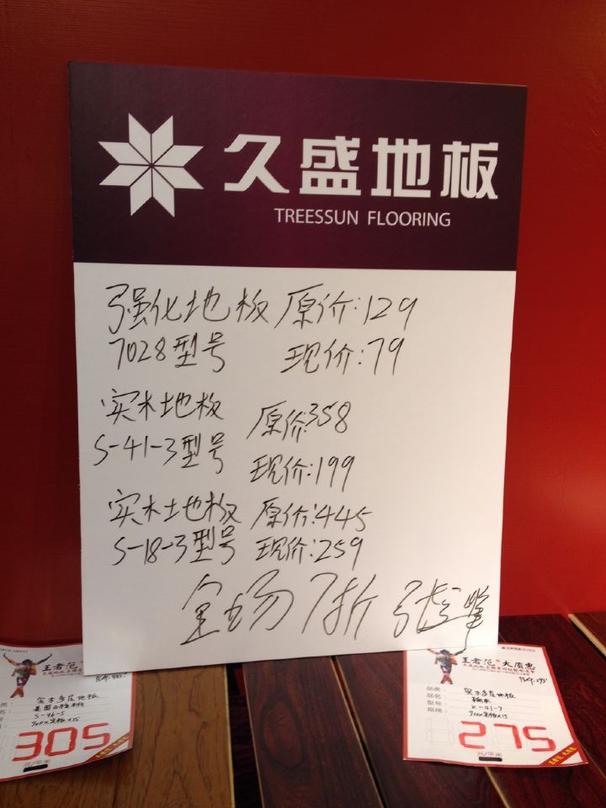 久盛地板
TREESSUN FLOORING
强化地板 原价:129
7028型号 现价:79
实木地板 原价:358
S-41-3型号 现价:199
实木地板 原价:445
S-18-3型号 现价:259
全场7折
实木多层地板
S-46-5
305
大质惠
实木多层地板
275